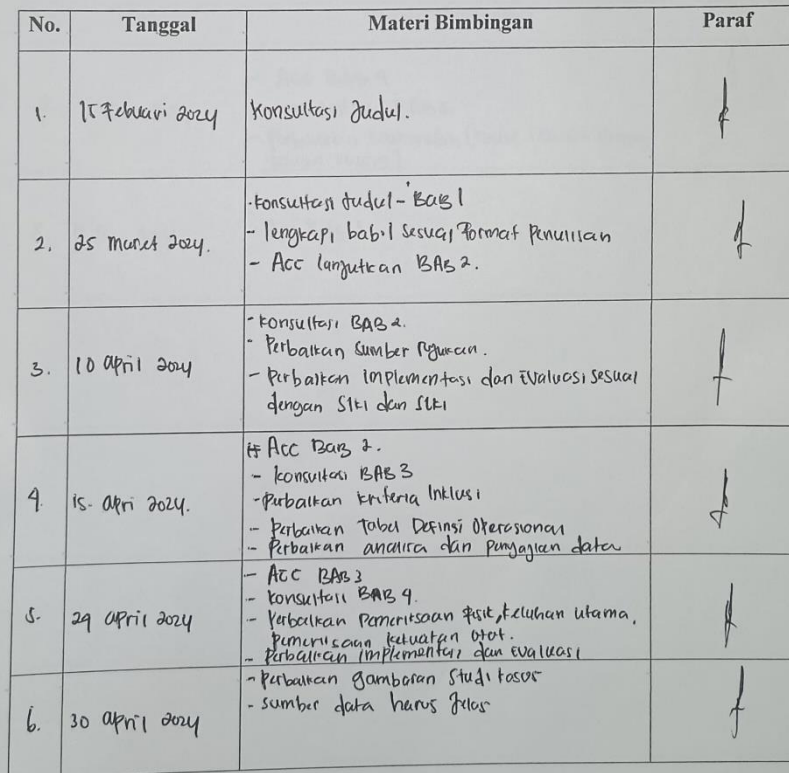 No. Tanggal Materi Bimbingan Paraf
1. 15 Februari 2024 Konsultasi Judul.
2. 25 Maret 2024.
- Konsultasi Judul - BAB 1
- lengkapi bab.1 sesuai Format Penulisan
- Acc lanjutkan BAB 2.
3. 10 april 2024
- Konsultasi BAB 2.
- Perbaikan Sumber Rujukan.
- Perbaikan implementasi dan Evaluasi sesuai
dengan SIKI dan SLKI
4. 15. Apri 2024.
Acc BAB 2.
- Konsultasi BAB 3
- Perbaikan kriteria Inklusi
- Perbaikan Tabel Definsi Operasional
- Perbaikan analisa dan penyajian data
5. 29 april 2024
- Acc BAB 3
- Konsultasi BAB 4.
- Perbaikan Pemeriksaan fisik, keluhan utama,
Pemeriksaan kekuatan otot.
- Perbaikan implementasi dan evaluasi
6. 30 april 2024
- Perbaikan gambaran Studi kasus
- Sumber data harus Jelas